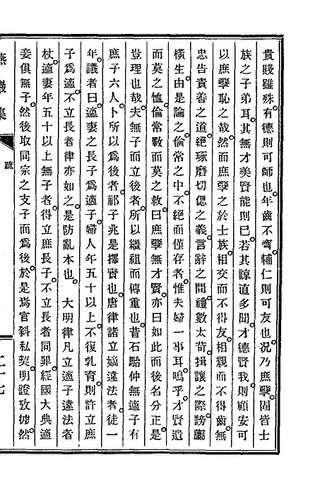 貴賤雖殊有德則可師也年齒不齊輔仁則可友也况乃庶孼固皆士
族之子弟耳其無才美賢能則已若其諒直多聞才德賢我則顧安可
以庶孼恥之哉然而庶孼之於士族相交而不得友相親而不得齒無
忠告責善之道絶琢磨切偲之義言辭之間禮數太苛揖讓之際謗讟
橫生由是論之倫常之中不絶而僅存者惟夫婦一事耳嗚乎才賢遺
而莫之恤倫常斁而莫之救曰庶孼無才賢亦曰如此而後名分正是
豈理也哉夫無子而立後者所以繼祖而傳重也昔石駘仲無適子有
庶子六人卜所以爲後者祁子兆是擇賢也唐律諸立嫡違法者徒一
年議者曰適妻之長子爲適子婦人年五十以上不復乳育則許立庶
子爲適不立長者律亦如之是防亂本也大明律凡立適子違法者
杖適妻五十以上無子者得立庶長子不立長者同罪經國大典適
妾俱無子然後取同宗之支子而爲後於是焉官斜私契明證攷據然
燕巖集
疏
二十七